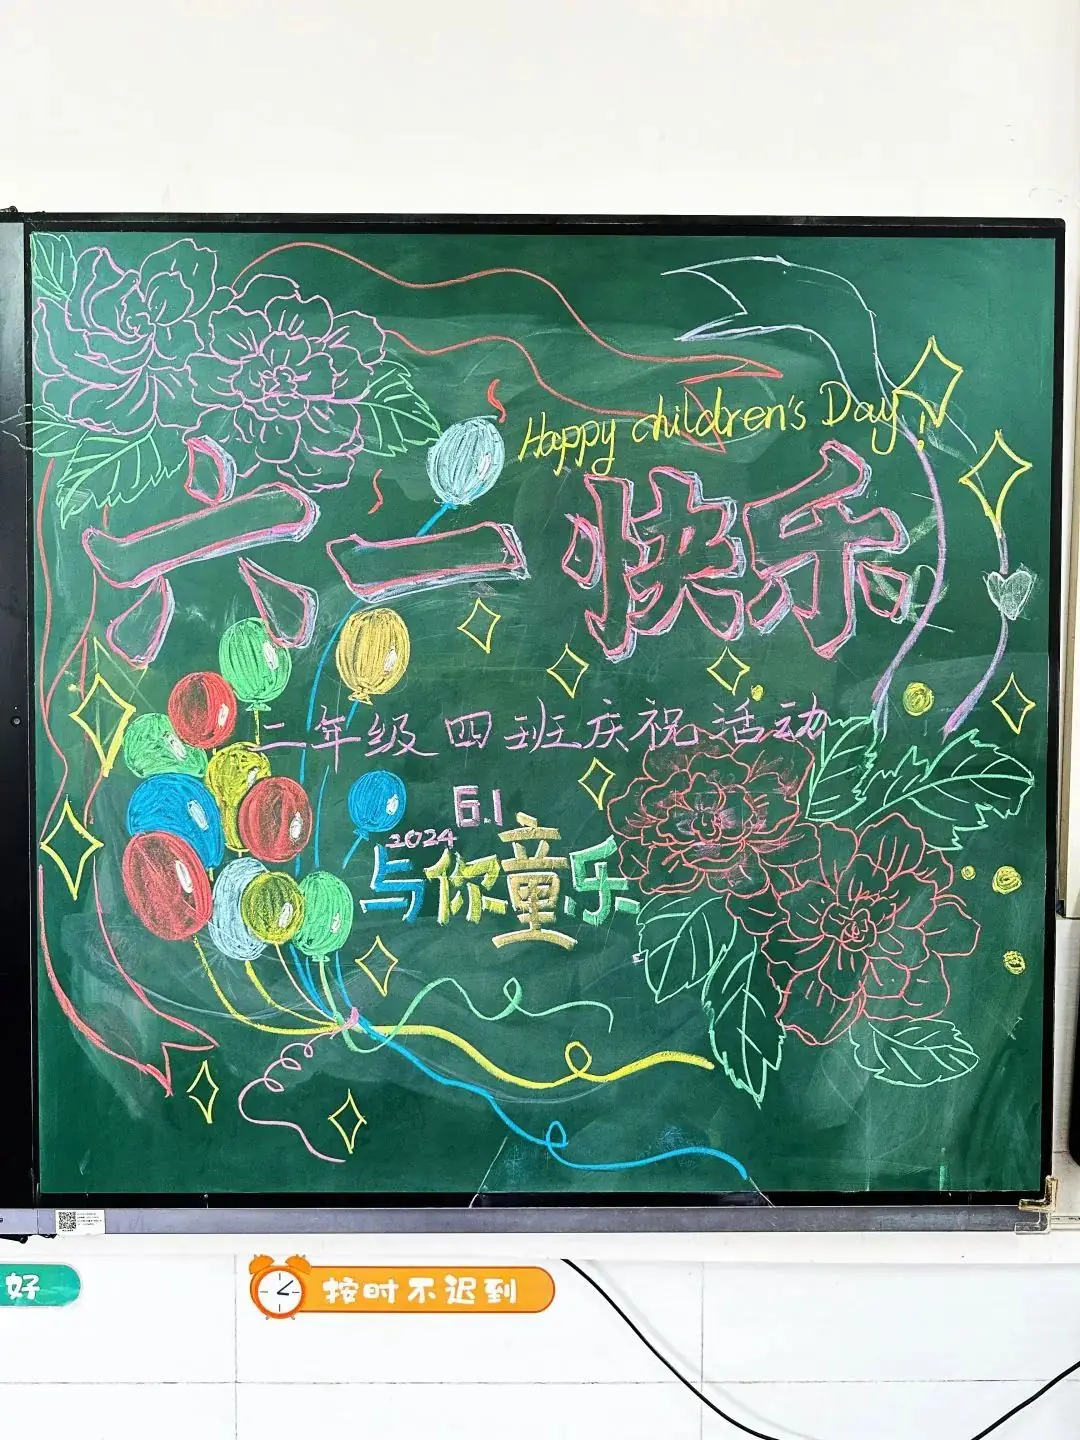 Happy children's Day!
六一快乐
二年级四班庆祝活动
6.1
2024
与你童乐
好
按时不迟到